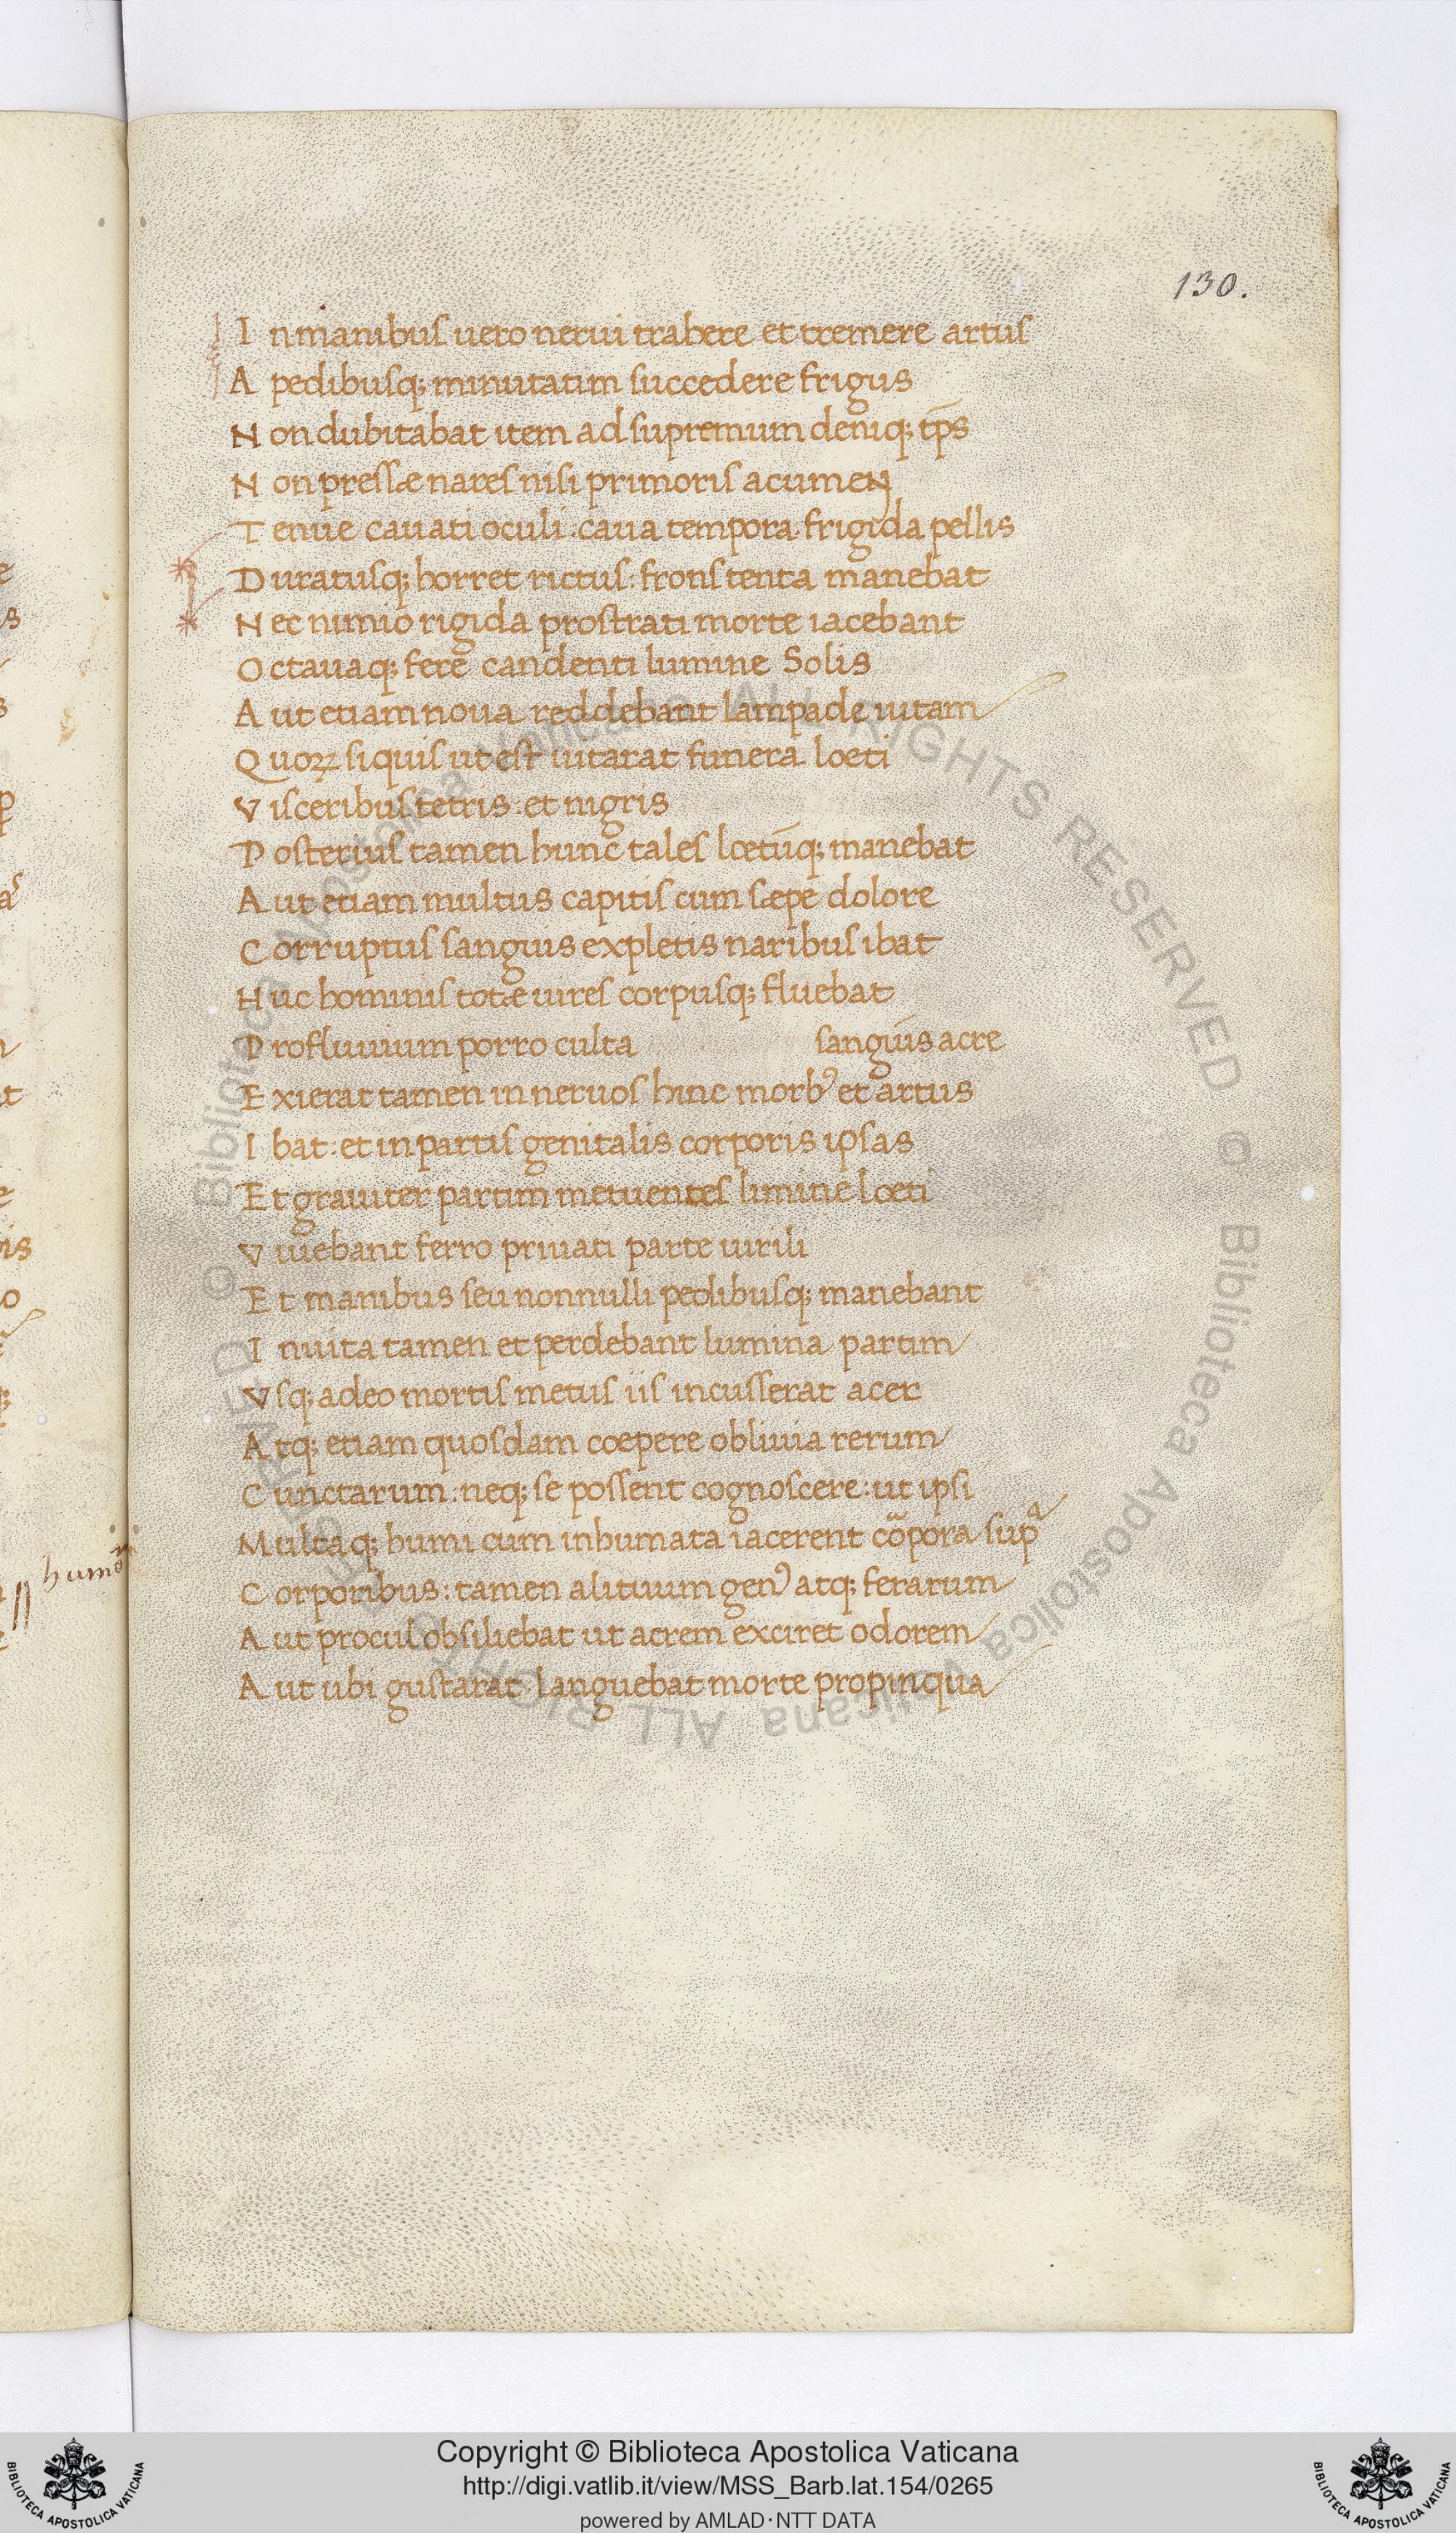 130.
I n manibus uero nerui trahere et tremere artus
A pedibusq; minutatim succedere frigus
N on dubitabat item ad supremum deniq; tp̄s
N on pressæ nares nisi primoris acumen
T enue cauati oculi. caua tempora. frigida pellis
D uratusq; horret rictus: frons tenta manebat
N ec nimio rigida prostrati morte iacebant
O ctauaq; fere candenti lumine Solis
A ut etiam noua reddebant lampade uitam
Q uoꝝ siquis ut est uitarat funera loeti
V isceribus tetris. et nigris
P osterius tamen hunc tales loetūq; manebat
A ut etiam multus capitis cum sæpe dolore
C orruptus sanguis expletis naribus ibat
H uc hominis totæ uires corpusq; fluebat
P rofluuium porro culta sanguis acre
E xierat tamen in neruos hinc morbꝰ et artus
I bat: et in partis genitalis corporis ipsas
E t grauiter partim metuentes limine loeti
V iuebant ferro priuati parte uirili
E t manibus seu nonnulli pedibusq; manebant
I nuita tamen et perdebant lumina partim
V sq; adeo mortis metus iis incusserat acer
A tq; etiam quosdam coepere obliuia rerum
C unctarum: neq; se possent cognoscere: ut ipsi
M ultaq; humi cum inhumata iacerent cōpora supᵃ
C orporibus: tamen alituum genꝰ atq; ferarum
A ut procul obsiliebat ut acrem exciret odorem
A ut ubi gustarat. languebat morte propinqua
Copyright © Biblioteca Apostolica Vaticana
http://digi.vatlib.it/view/MSS_Barb.lat.154/0265
powered by AMLAD·NTT DATA